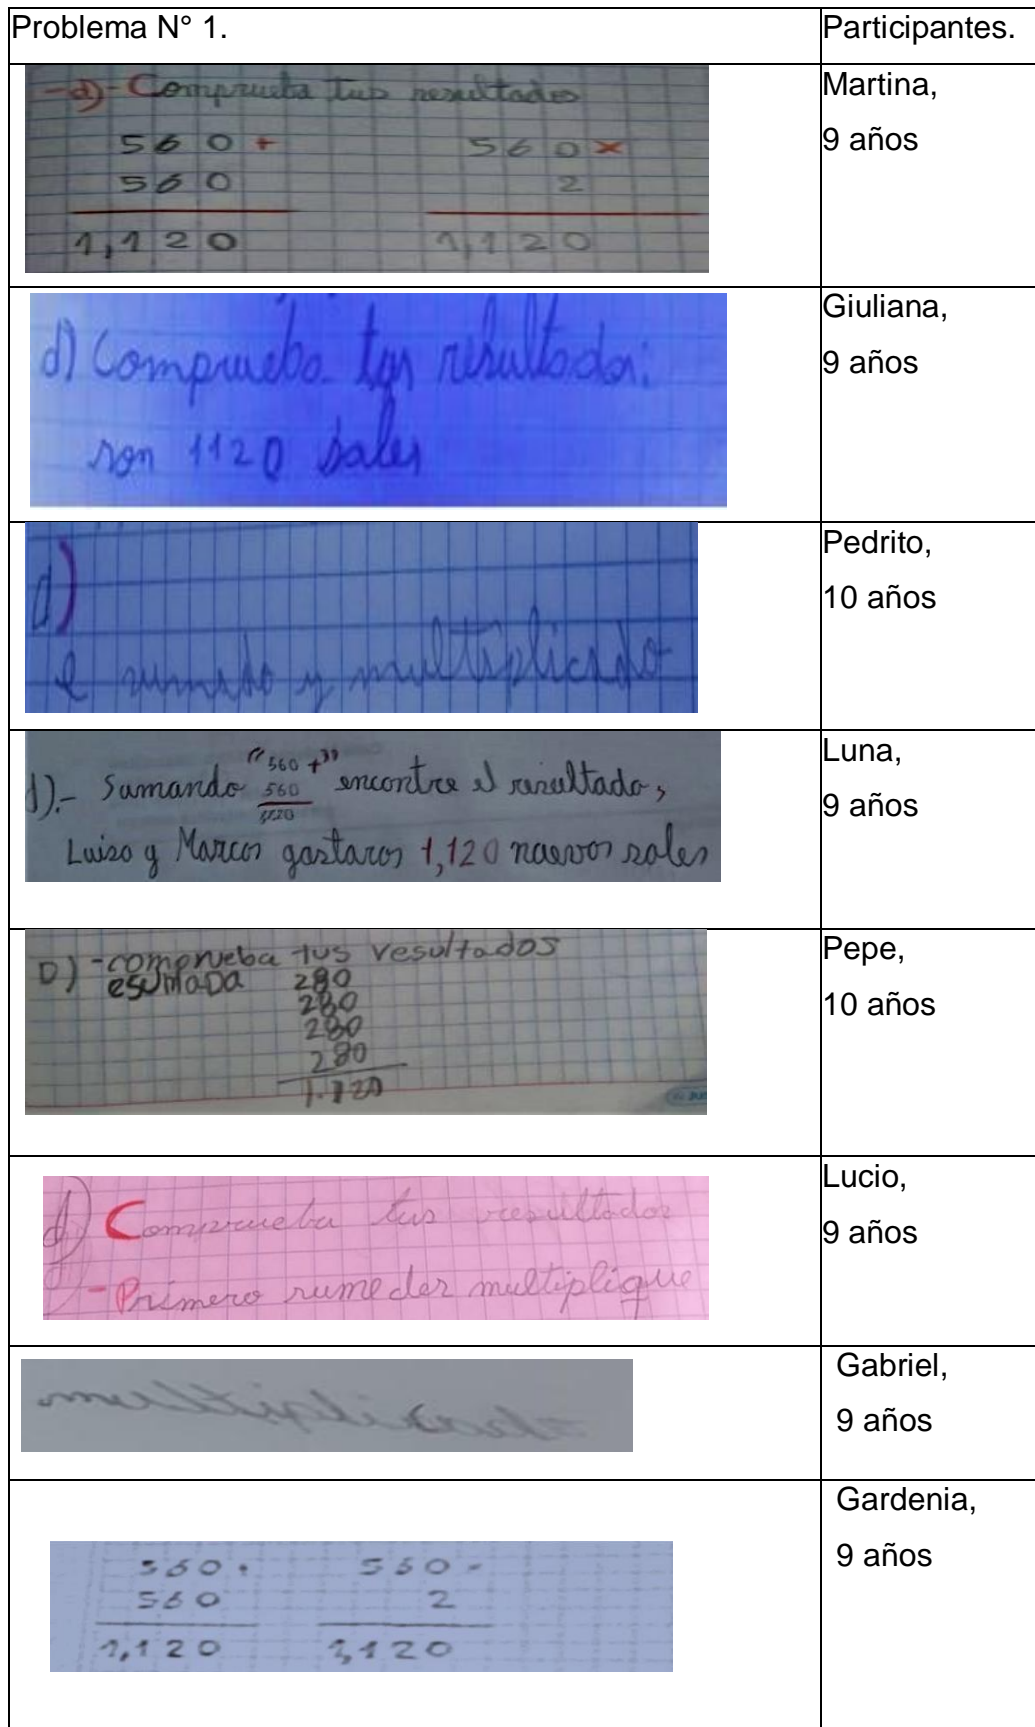 Problema N° 1.
Participantes.
-d)- Comprueba tus resultados
560 +
560
1,120
560 ×
2
1,120
Martina,
9 años
d) Comprueba tus resultados:
son 1120 soles
Giuliana,
9 años
d)
e sumado y multiplicado
Pedrito,
10 años
d).- Sumando "560 +" encontre el resultado,
560
1120
Luiso y Marcos gastaron 1,120 nuevos soles
Luna,
9 años
D) -comprueba tus resultados
esumaDa 280
280
280
280
1.120
Pepe,
10 años
d) Comprueba tus resultados
- Primero sume des multiplique
Lucio,
9 años
Gabriel,
9 años
560 +
560
1,120
560 -
2
1,120
Gardenia,
9 años